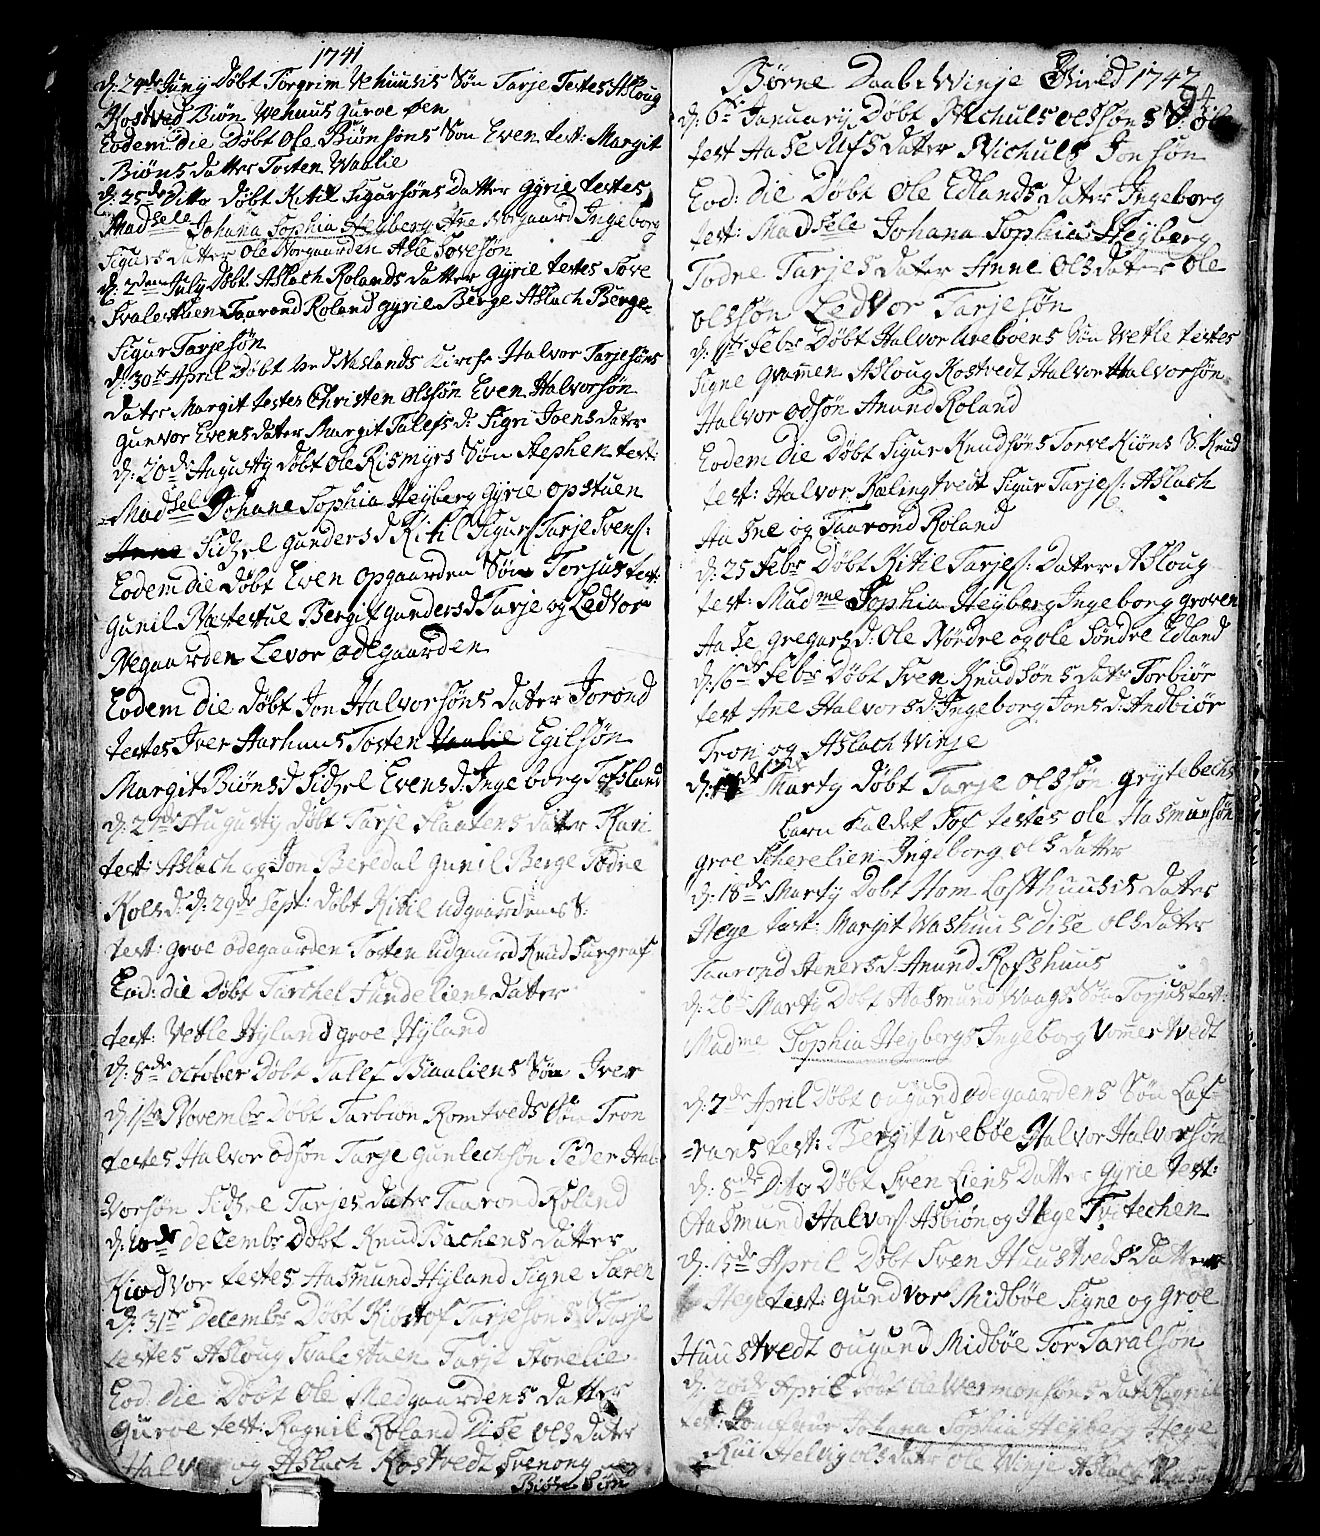 1741
d: 24de Juny Døbt Torgrim Vehuusis Søn Tarje Testes Asloug
Rostved Biøn Vehuus Guroe
Eodem die Døbt Ole Biønsøns Søn Even test: Margit
Biøns datter Tosten Vaalie
d: 25de Ditto Døbt Kitil Sigursøns Datter Gyrie testes
Madsele Johana Sophia Heyberg Norgaard Ingeborg
Sigurs datter Ole Norgaarden Asle Sovesøn
d: 2den July Døbt Aslach Rolands datter Gyrie testes Sove
Svalestuen Taarond Roland Gyrie Berge Aslach Berge
Sigur Tarjesøn
d: 30te April Døbt ved Neslands Kirche Halvor Tarjesøns
dater Margit testes Christen Olssøn Even Halvorsøn
Gunvor Evens dater Margit Talefs d: Sigri Joens dater
d: 20de Augusty Døbt Ole Rismyrs Søn Stephen test:
Madsel Johane Sophia Heyberg Gyrie Opstuen
Sidzel Gunders d Kitil Sigurs: Tarje Svens:
Eodem die Døbt Even Opgaarden Søn Torjus test:
Gunil Nættestue Bergit Gundersd Tarje og Ledvor
Negaarden Levor Odegaarden
Eodem die Døbt Jon Halvorsøns dater Jorond
testes Iver Aarhuus Tosten Vaalie Egilsøn
Margit Biøns d Sidzel Evens d: Ingeborg Tofsland
d: 27de Augusty Døbt Tarje Flaatens dater Kari
test: Aslach og Jon Beredal Gunil Berge Todne
Rols d: d: 29de Sept: Døbt Kitil Udgaardens S:
test: Groe Odegaarden Tosten Udgaard Knud Surgraf
Eod: die Døbt Tarchel Fundeliens datter
test: Vetle Hylund Groe Hyland
d: 8de October Døbt Talef Baaliens Søn Iver
d: 1ste Novembr Døbt Tarbiøn Romtveds Søn Tron
testes Halvor Odsøn Tarje Gunlechsøn Peder Hal
vorsøn Sidzel Tarjes dater Taarond Roland
d: 10de decembr Døbt Knud Bachens datter
Kiødvor testes Aasmund Hyland Signe Særen
d: 31te Decembr Døbt Kiøstof Tarjesøns S: Tarje
testes Asloug Svalestuen Tarje Storelie
Eod: die Døbt Ole Medgaardens datter
Guroe test: Ragnil Roland Dise Ols dater
Halv og Aslach Rostvedt Svenong
Biøn Søn
Børne Daab i Winje Gield 1742
94.
d: 6te January Døbt Nichuls Olssøns S: Ole
test Aase Ulfs dater Nichuls Jonsøn
Eod: die Døbt Ole Edlands dater Ingeborg
test: Madsele Johana Sophia Heyberg
Todne Tarjes dater Anne Ols dater Ole
Olssøn Ledvor Tarjesøn
d: Febr Døbt Halvor Ureboens Søn Vetle testes
Signe Grammen Asloug Rostvedt Halvor Halvorsøn
Halvor Odsøn Anund Roland
Eodem die Døbt Sigur Knudsøns Torvekiøns S: Knud
test: Halvor Kælingtvedt Sigur Tarjes: Aslach
Aasne og Taarond Roland
d: 25 Febr Døbt Kittil Tarjes: Dater Asloug
test: Madme Sophia Heyberg Ingeborg Groven
Aase Gregars d: Ole Nørdre og Ole Søndre Edland
d: 16de Febr Døbt Sven Knudsøns dater Torbiør
test Ane Halvors d Ingeborg Jons d: Andbiør
Tron og Aslach Winje
d: Marty Døbt Tarje Olssøn Grytebechs
barn kaldet Tof testes Ole Aasmunsøn
Groe Scherelien Ingeborg Ols datter
d: 18de Marty Døbt Hom Lofthuusis datter
Hege test: Margit Nashuus Dise Ols dater
Taarond Aeners d: Anund Rofshuus
d: 26de Marty Døbt Aasmund Waags Søn Torjus test:
Madme Sophia Heybergs Ingeborg Vomertvedt
d: 7de April Døbt Ougund Odegaardens Søn Laf
=rans test: Bergit Urebøe Halvor Halvorsøn
d: 8de Dito Døbt Sven Liens Datter Gyrie test:
Aasmund Halvors: Asbiøn og Hege Tvitechen
d: 15de April Døbt Sven Huustveds Datter
Hege test: Gundvor Midbøe Signe og Groe
Huustvedt Ougund Midbøe Tor Taralsøn
d: 20de April Døbt Ole Wermonsøns dater Ragnil
test: Johana Sophia Heyberg Hege
Helvig Ols dater Ole Winje Aslach